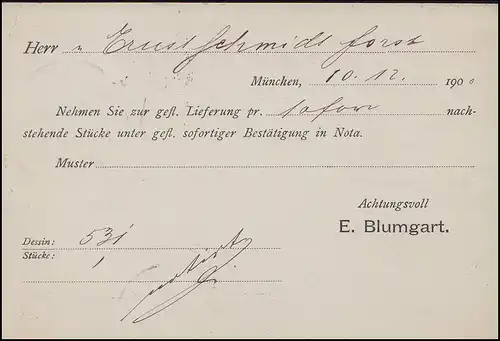 Herr n Ernst Schmidt Forst
München, 10.12. 1900
Nehmen Sie zur gefl. Lieferung pr. sofort nach-
stehende Stücke unter gefl. sofortiger Bestätigung in Nota.
Muster
Achtungsvoll
E. Blumgart.
Dessin: 531
Stücke: 1
notirt